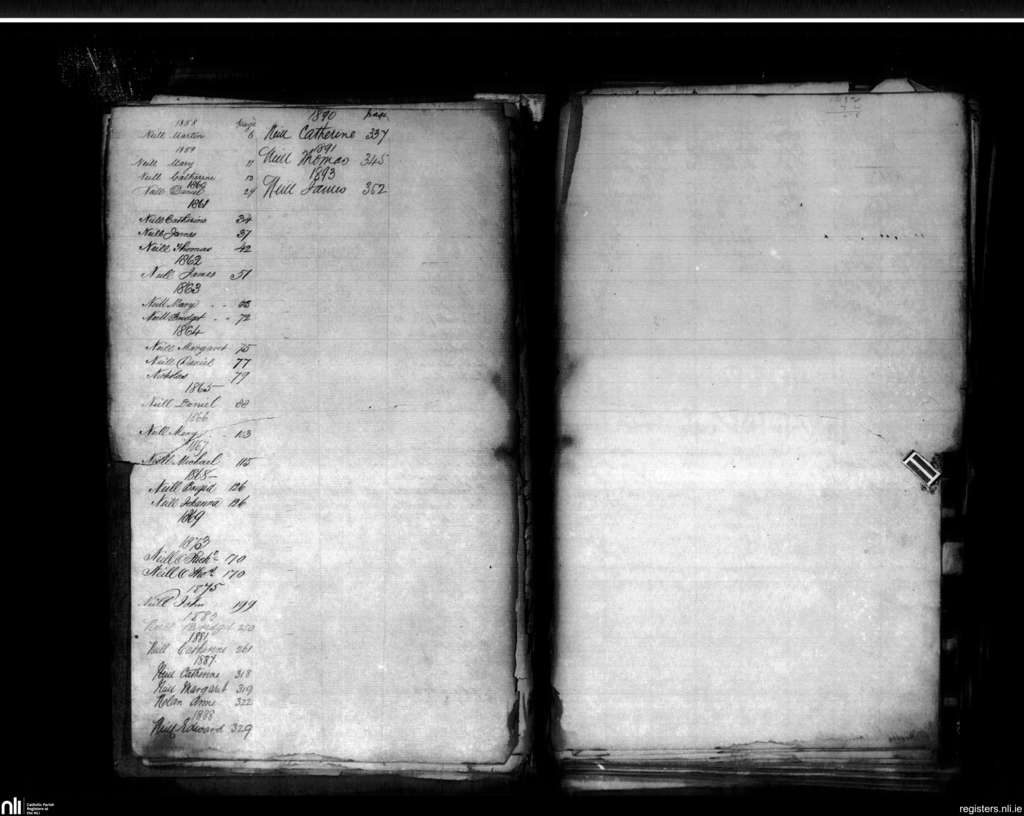 1858 page
Neill Martin 6
1859
Neill Mary 11
Neill Catherine 13
1860
Neill Daniel 29
1861
Neill Catherine 34
Neill James 37
Neill Thomas 42
1862
Neill James 51
1863
Neill Mary
Neill Bridget 72
1864
Neill Margaret 75
Neill Daniel 77
Nicholas 79
1865
Neill Daniel 88
1866
Neill Mary 103
1867
Neill Michael 115
1868
Neill 126
Neill Johanna 126
1869
1873
Neill C 170
Neill C 170
1875
Neill John 199
1883
Neill Bridget 250
1881
Neill Catherine 261
1887
Neill Catherine 318
Neill Margaret 319
Nolan Anne 322
1888
Neill Edward 329
1890 page
Neill Catherine 337
1891
Neill Thomas 345
1893
Neill James 362
nli
Catholic Parish
Registers at
the NLI
registers.nli.ie